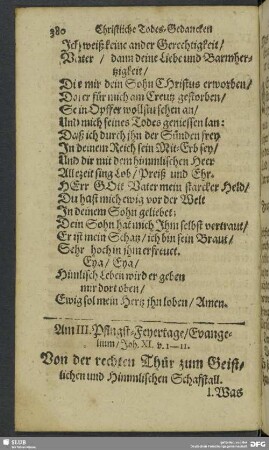 380 Christliche Todes-Gedancken
Ich weiß keine ander Gerechtigkeit /
Vater / dann deine Liebe und Barmher-
tzigkeit /
Die mir dein Sohn Christus erworben /
Da er für mich am Creutz gestorben /
Sein Opffer wollstu sehen an /
Und mich seines Todes geniessen lan:
Daß ich durch ihn der Sünden frey
In deinem Reich sein Mit-Erb sey /
Und dir mit dem himmlischen Heer
Allezeit sing Lob / Preiß und Ehr.
HErr GOtt Vater mein starcker Held /
Du hast mich ewig vor der Welt
In deinem Sohn geliebet:
Dein Sohn hat mich Ihm selbst vertraut /
Er ist mein Schatz / ich bin sein Braut /
Sehr hoch in ihm erfreuet.
Eya / Eya /
Himlisch Leben wird er geben
mir dort oben /
Ewig sol mein Hertz ihn loben / Amen.
Am III. Pfingst-Feyertage / Evange-
lium / Joh. XI. v. 1–11.
Von der rechten Thür zum Geist-
lichen und Himmlischen Schafstall.
1. Was
SLUB